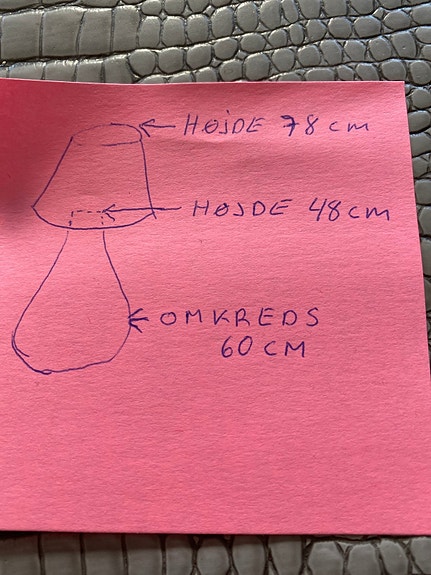 HØJDE 78 CM
HØJDE 48 CM
OMKREDS
60 CM